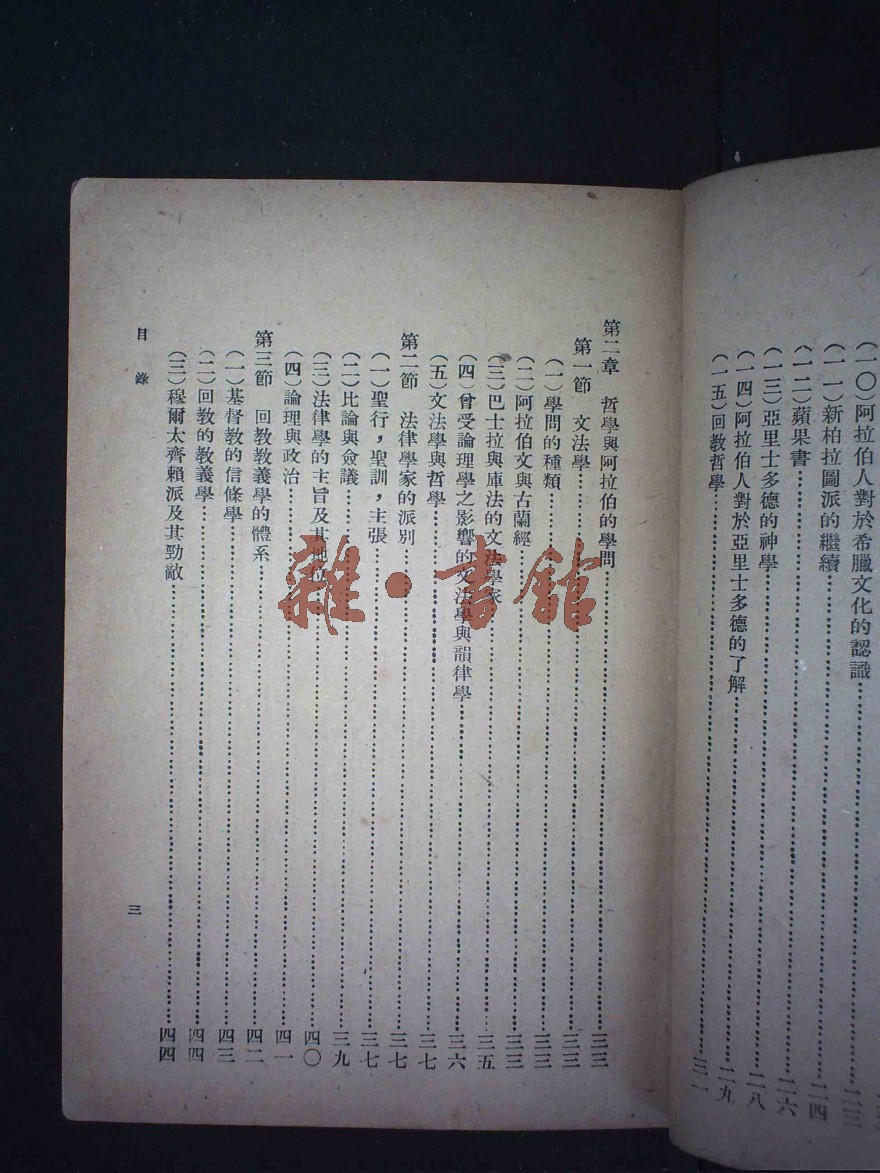 (一〇)阿拉伯人對於希臘文化的認識……二三
(一一)新柏拉圖派的繼續……二四
(一二)蘋果書……二六
(一三)亞里士多德的神學……二八
(一四)阿拉伯人對於亞里士多德的了解……二九
(一五)回教哲學……三一
第二章 哲學與阿拉伯的學問……三三
第一節 文法學……三三
(一)學問的種類……三三
(二)阿拉伯文與古蘭經……三三
(三)巴士拉與庫法的文法學家……三五
(四)曾受論理學之影響的文法學與韻律學……三六
(五)文法學與哲學……三七
第二節 法律學家的派別……三七
(一)聖行,聖訓,主張……三七
(二)比論與僉議……三九
(三)法律學的主旨及其地位……四〇
(四)論理與政治……四一
第三節 回教教義學的體系……四二
(一)基督教的信條學……四三
(二)回教的教義學……四四
(三)穆爾太齊賴派及其勁敵……四四
目錄
三
雜·書館